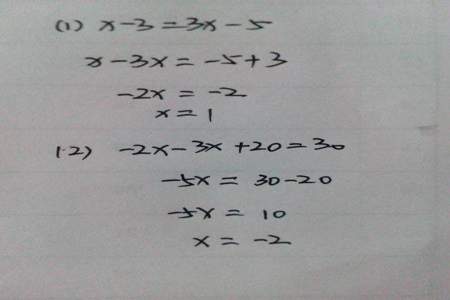 (1) x-3=3x-5
x-3x=-5+3
-2x=-2
x=1
(2) -2x-3x+20=30
-5x=30-20
-5x=10
x=-2